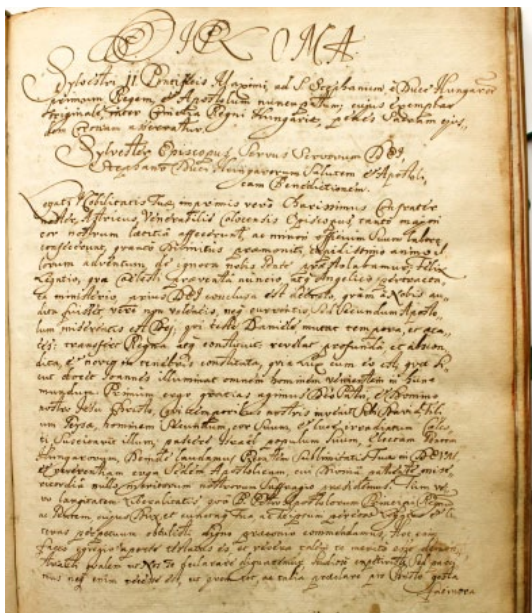 DIPLOMA
Sylvestri II Pontificis Maximi, ad S. Stephanum, è Duce Hungaror
primum Regem, et Apostolum nuncupatum, cujus exemplar
originale, inter Cimelia Regni Hungariæ, penes Sacram ejus,,
dem Coronam asservatur.
Sylvester Episcopus Servus Servorum DEI,
Stephano Duci Hungarorum Salutem et Apostoli,,
cam Benedictionem.
Legati Nobilitatis Tuæ, imprimis verò Charissimus Confrater
noster Astricus, Venerabilis Colocensis Episcopus tantò majori
cor nostrum lætitiâ affecerunt, ac minori officium suum labore
confecerunt, quantò Divinitus præmoniti, cupidissimo animo il
lorum adventum de ignota nobis Gente præstolabamur, Felix
Legatio, quæ Cælesti præventa nuncio atq Angelico pertracta,,
ta ministerio, prius DEI conclusa est decreto, quàm à Nobis au,,
dita fuisset, verè non volentis, neq currentis, sed secundum Aposto,,
lum miserentis est Dei, qui teste Daniele, mutat tempora, et æta,,
tes; transfert Regna atq constituit, revelat profunda, et abscon
dita, et novit in tenebris constituta, quia Lux cum eo est, quæ si,
cut docet Joannes illuminat omnem hominem venientem in hunc
mundum. Primum ergo gratias agimus Deo Patri, et Domino
nostro Jesu Christo, qui temporibus nostris invenit sibi David fili,,
um Geysæ, hominem secundum cor suum, et luce irradiatum Cæles,,
ti suscitavit illum, pascere Israel populum suum, electam Gentem
Hungarorum, Deinde laudamus Pietatem Sublimitatis Tuæ in DEUM
et reverentiam erga Sedem Apostolicam, cui Divinâ patiente mise,,
ricordiâ nullo meritorum nostrorum suffragio præsidemus. Tum ve,,
rò largitatem Liberalitatis quâ B. Petro Apostolorum Principi Regnum
ac Gentem, cujus Dux, et cuncta Tua ac Teipsum per eosdem Legatos et li,,
teras perpetuum obtulisti digno præconio commendamus, Hoc enim
facto egregio apertè testatus es,